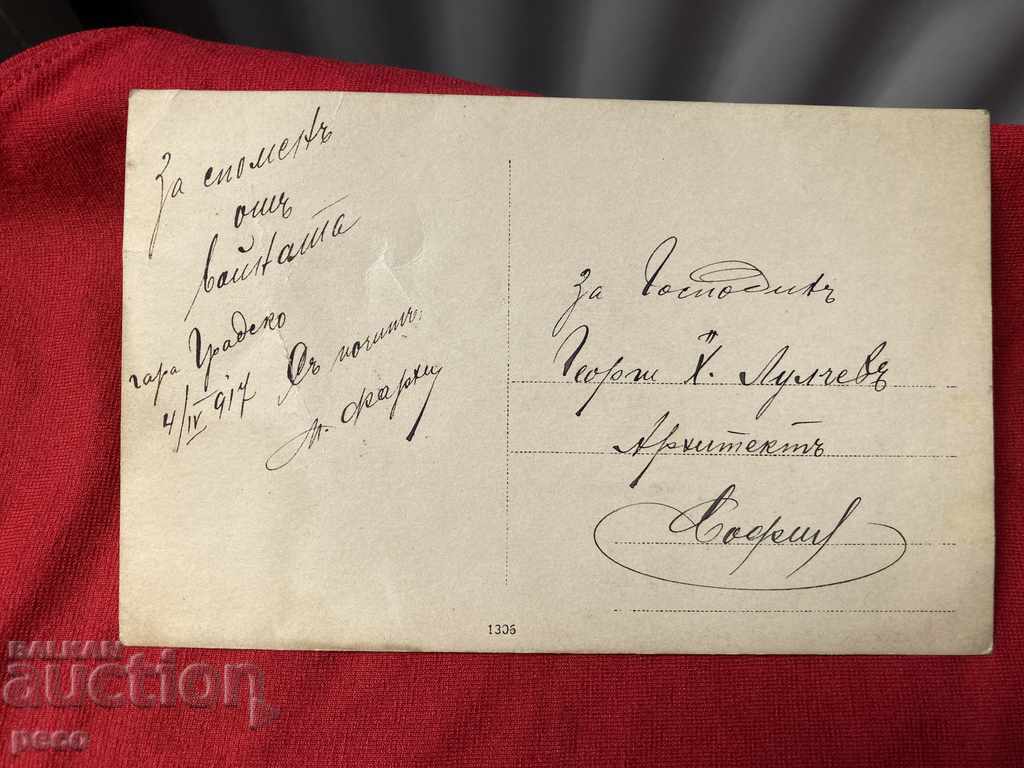 За споменъ
отъ
войната
гара Градско
4/IV 917
Съ почитъ:
М. Фархи
За Господинъ
Георги Х. Лулчевъ
Архитектъ
София
1306
BALKAN
auction
peco